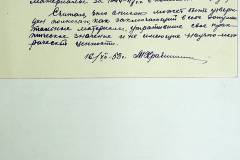 материалы за 194
Считаю, что список может быть утвер-
жден полностью как заключающий в себе докумен-
тальные материалы, утратившие свое прак-
тическое значение и не имеющие научно-исто-
рической ценности.
16/VI-59г.